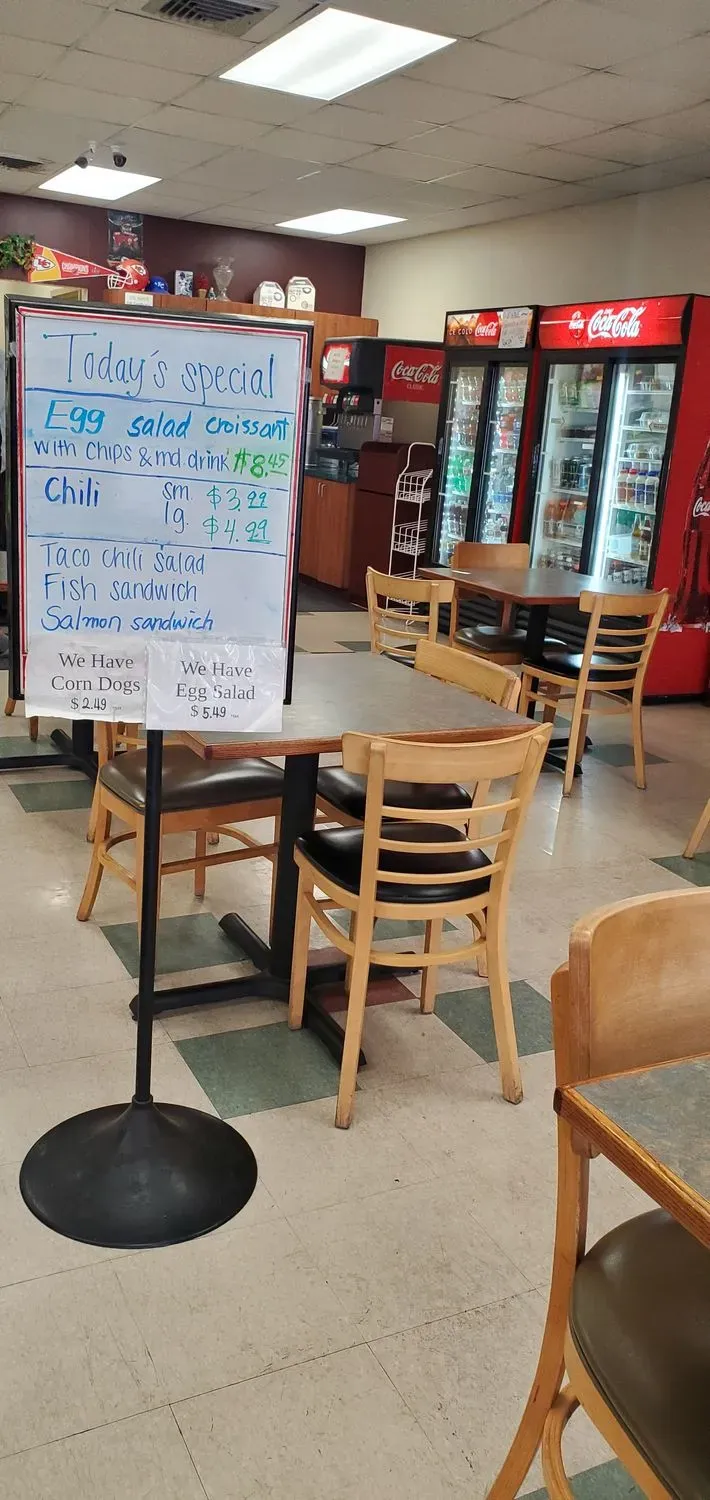 Today's special
Egg salad croissant
with chips & md. drink $8.45
Chili sm. $3.99
lg. $4.99
Taco chili salad
Fish sandwich
Salmon sandwich
We Have
Corn Dogs
$2.49
We Have
Egg Salad
$5.49
Coca-Cola
CLASSIC
ICE COLD Coca-Cola
Coca-Cola